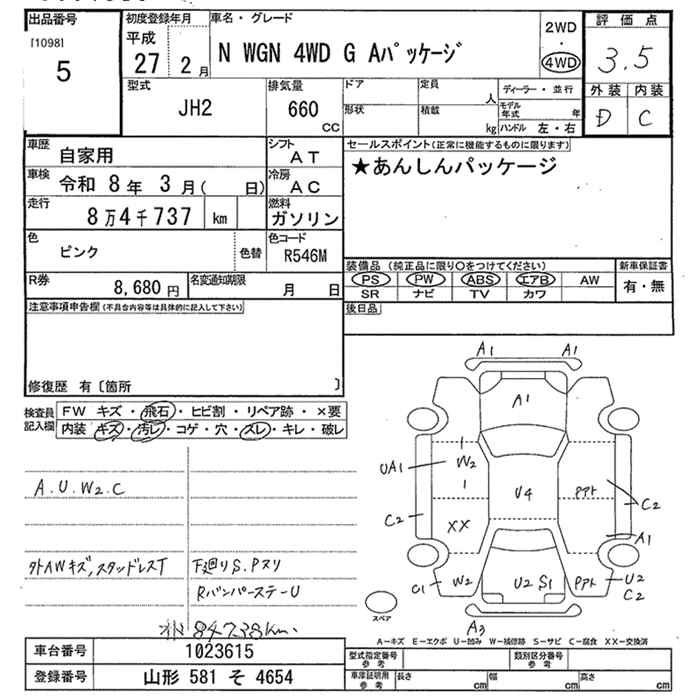 出品番号
[1098]
5
初度登録年月
平成
27 2月
車名・グレード
N WGN 4WD G Aパッケージ
2WD
・
4WD
評価点
3.5
外装 内装
D C
型式
JH2
排気量
660
cc
ドア
形状
定員
人
積載
kg
ディーラー・並行
モデル年式 年
ハンドル 左・右
車歴
自家用
シフト
AT
車検
令和 8年 3月( 日)
冷房
AC
走行
8万4千737 km
燃料
ガソリン
色
ピンク
色替
色コード
R546M
R券
8,680円
名変通知期限
月 日
セールスポイント(正常に機能するものに限ります)
★あんしんパッケージ
装備品(純正品に限り○をつけてください)
PS PW ABS エアB AW
SR ナビ TV カワ
新車保証書
有・無
後日品
注意事項申告欄(不具合内容等は具体的に記入して下さい)
修復歴 有〔箇所 〕
検査員
記入欄
FW キズ・飛石・ヒビ割・リペア跡・×要
内装 キズ・汚レ・コゲ・穴・スレ・キレ・破レ
A.U.W2.C
外AWキズ,スタッドレスT
下廻りS.Pスリ
RバンパーステーU
84738km
A1 A1
A1
UA1
W2
U4
C2
C2
XX
A1
C1
W2
U2 S1
U2
C2
A3
スペア
A-キズ E-エクボ U-凹み W-補修跡 S-サビ C-腐食 XX-交換済
車台番号
1023615
登録番号
山形 581 そ 4654
型式指定番号
参考
類別区分番号
参考
車庫証明用
参考
長さ cm 幅 cm 高さ cm